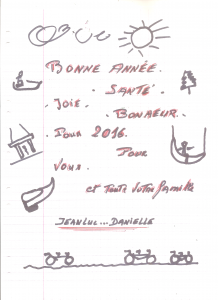 BONNE ANNÉE.
SANTÉ.
JOIE. BONHEUR.
POUR 2016.
POUR
VOUS.
et toute votre famille
JEANLUC...DANIELLE